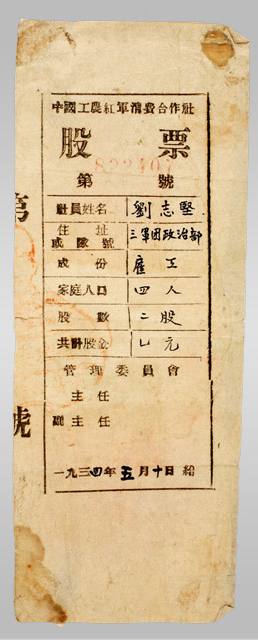 中國工農紅軍消費合作社
股票
第 號
社員姓名 劉志堅
住址或隊號 三軍团政治部
成份 雇工
家庭人口 四人
股數 二股
共計股金 元
管理委員會
主任
副主任
一九三四年五月十日給
第
號